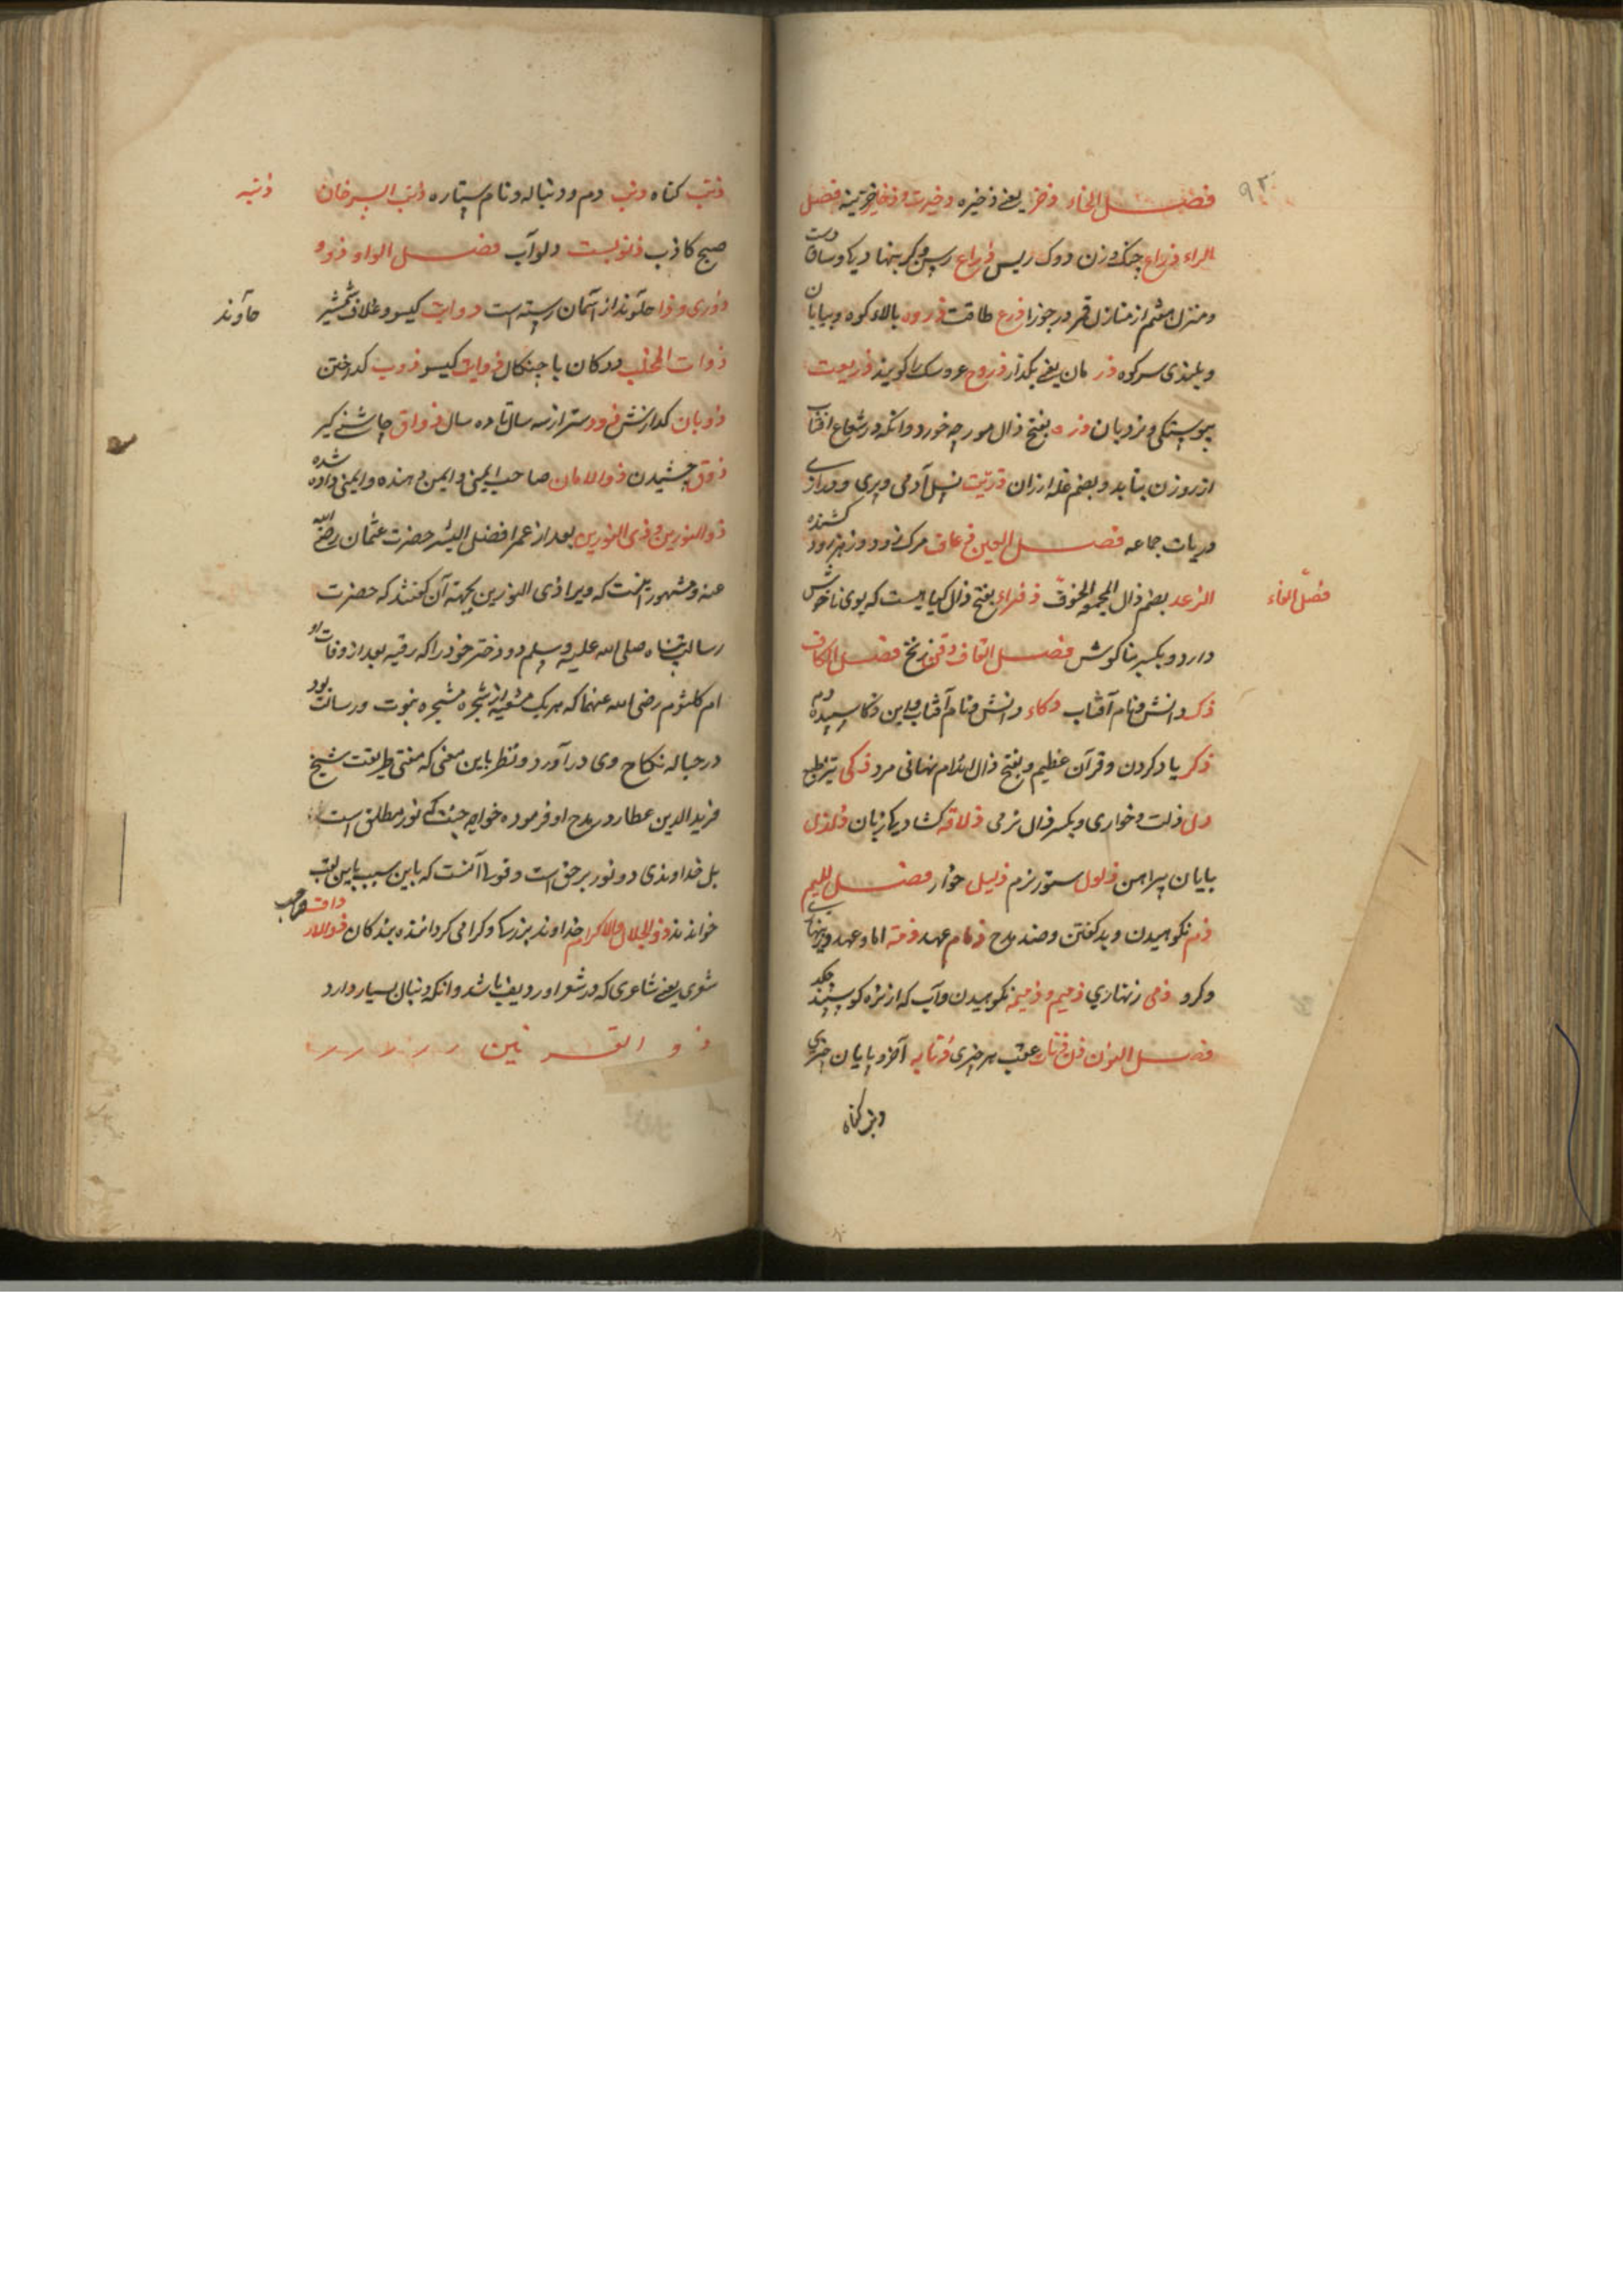 ۹۳
فصل الخاء ذخر یعنی ذخیره ذخیرت و ذخایر خزینه فصل
الراء ذراع چنک زن دوک ریس ذراع رسن و کز بنهادیکا و ساق دست
و منزل هفتم از منازل قمر در جوزا ذرع طاقت ذروه بالاء کوه و بیابان
و بلندی سر کوه ذر مان یعنی بگذار ذروح عروسک را کویند ذریعت
پیوستکی و نردبان ذره بفتح ذال مورچه خورد و انکه در شعاع افتاب
از روزن بتابد و بضم غله ارزان ذریت نسل آدمی و پری و
ذریات جماعه فصل العین ذعاف مرک زود و زهر زود کشنده
الذعد بضم ذال الجمع الخوف ذفراء بفتح ذال کیاهیست که بوی ناخوش
فصل الفاء
دارد و بکسر بناکوش فصل القاف ذقن زنخ فصل الکاف
ذکا دانش و نام آفتاب ذکاء دانش و نام آفتاب و ابن ذکا سپیده دم
ذکر یاد کردن و قرآن عظیم و بفتح ذال اندام نهانی مرد ذکی تیز طبع
ذل ذلت و خواری و بکسر ذال نرمی ذلاقه کشادیکا زبان ذلذل
پایان پیراهن ذلول ستور نرم ذلیل خوار فصل المیم
ذم نکوهیدن و بد کفتن و ضد مدح ذمام عهد ذمه امان و عهد و زینهار
و کرو ذمی زنهاری ذمیم و ذمیمه نکوهیدن و آب که از نره کوسپند چکد
فصل النون ذناب عقب هر چیزی ذنابه آخر و پایان چیزی
ذنب کناه
ذنب کناه ذنب دم و دنباله و نام ستاره ذنب السرحان
ذنبه
صبح کاذب ذنوبست دلو آب فصل الواو ذو و
ذوری و ذوا حآوند از آسمان رسته است ذوابت کیسو و غلاف شمشیر
حآوند
ذوات المخلب ددکان با چنکال ذوایت کیسو ذوب کداختن
ذوبان کدازش ذود ستر از سه سال تا ده سال ذواق چاشنی کیر
ذوق چشیدن ذوالامان صاحب ایمنی و ایمن دهنده و ایمنی داده شده
ذوالنورین و ذی النورین بعد از عمر افضل البشر حضرت عثمان رضی الله
عنه و مشهور اینست که ویرا ذی النورین بجهته آن کفتند که حضرت
رسالت پناه صلی الله علیه وسلم دو دختر خود را که رقیه بعد از وفات او
ام کلثوم رضی الله عنهما که هر یک شعبه از شجره نبوت و رسالت بود
در حباله نکاح وی در آورد و نظر باین معنی که مفتی طریقت شیخ
فرید الدین عطار در مدح او فرموده خواجه جنت که نور مطلق است
بل خداوندی دو نور بر حق است و قولا آنست که باین سبب باین لقب
خواندند ذو الجلال والاکرام خداوند بزرکیا و کرامی کرداننده بندکان ذوالار
شعری یعنی شاعری که در شعر او ردیف باشد و انکه دنبال بسیار دارد
ذو القرنین